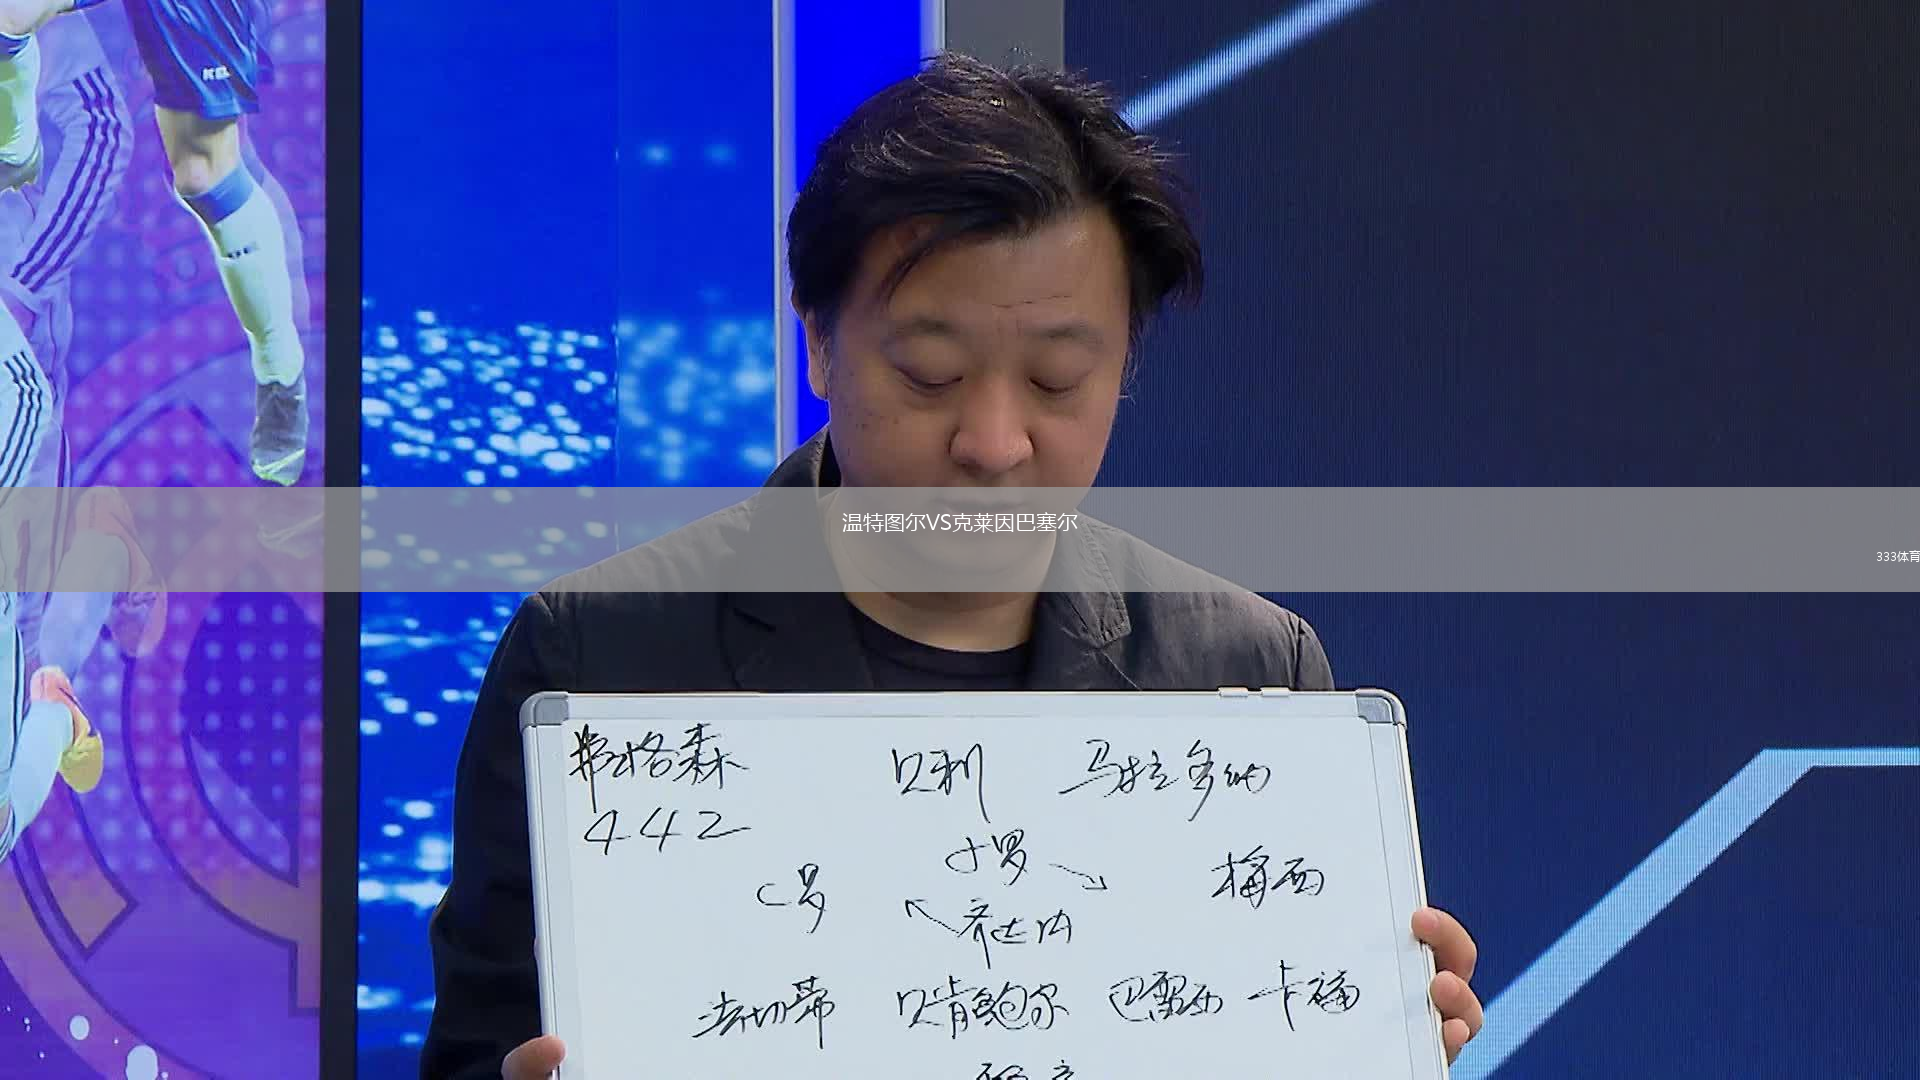 KEL
温特图尔VS克莱因巴塞尔
333体育
弗格森 贝利 马拉多纳
442
小罗
C罗 梅西
齐达内
法切蒂 贝肯鲍尔 巴雷西 卡福